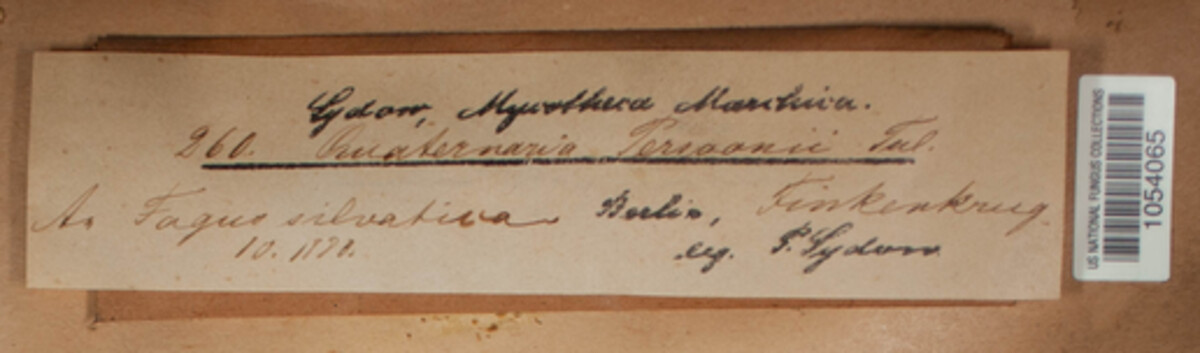 Sydow, Mycotheca Marchica.
260. Quaternaria Persoonii Tul.
An Fagus silvatica Berlin, Finkenkrug.
10. leg. P. Sydow
US NATIONAL FUNGUS COLLECTIONS
1054065